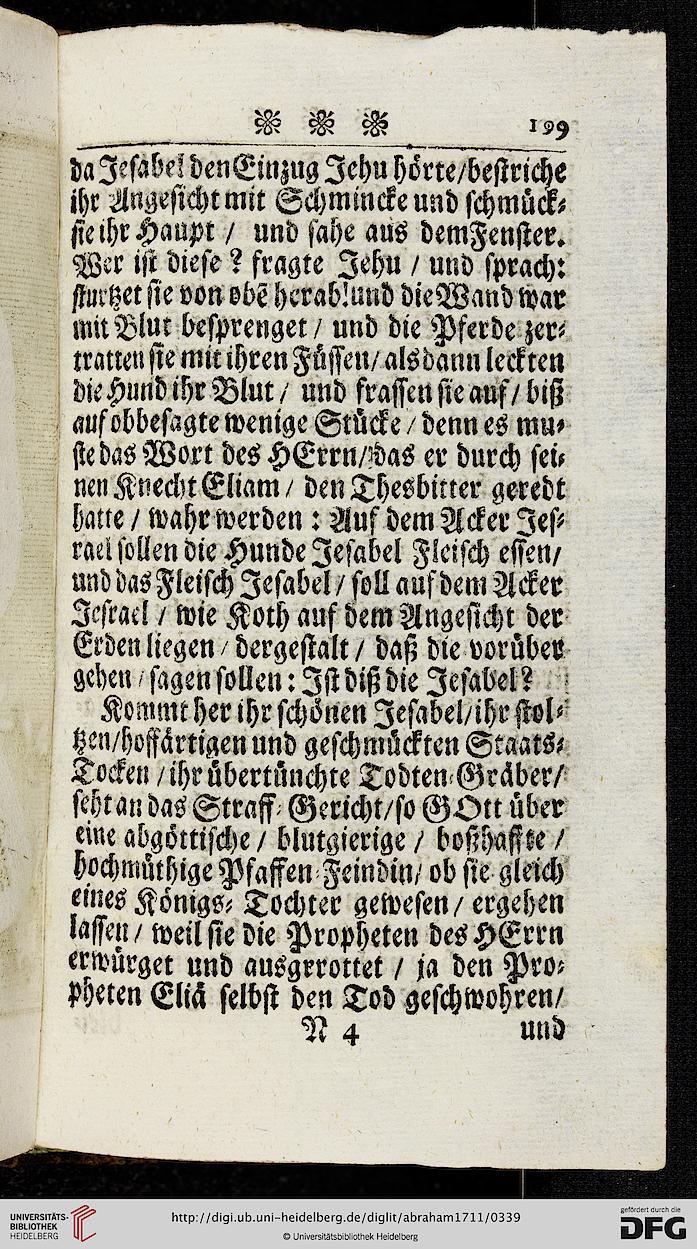 199
da Jesabel den Einzug Jehu hörte/bestriche
ihr Angesicht mit Schmincke und schmück-
sie ihr Haupt / und sahe aus dem Fenster.
Wer ist diese? fragte Jehu / und sprach:
sturtzet sie von obē herab! und die Wand war
mit Blut besprenget / und die Pferde zer-
tratten sie mit ihren Füssen/ alsdann leckten
die Hund ihr Blut / und frassen sie auf / biß
auf obbesagte wenige Stücke / denn es mu-
ste das Wort des HErrn/ das er durch sei-
nen Knecht Eliam / den Thesbitter geredt
hatte / wahr werden : Auf dem Acker Jes-
rael sollen die Hunde Jesabel Fleisch essen/
und das Fleisch Jesabel / soll auf dem Acker
Jesrael / wie Koth auf dem Angesicht der
Erden liegen / dergestalt / daß die vorüber
gehen / sagen sollen : Ist diß die Jesabel?
Kommt her ihr schönen Jesabel/ihr stol-
tzen/hoffärtigen und geschmückten Staats-
Tocken / ihr übertünchte Todten-Gräber/
seht an das Straff-Gericht/so GOtt über
eine abgöttische / blutgierige / boßhaffte /
hochmüthige Pfaffen-Feindin/ ob sie gleich
eines Königs- Tochter gewesen / ergehen
lassen / weil sie die Propheten des HErrn
erwürget und ausgrrottet / ja den Pro-
pheten Eliä selbst den Tod geschwohren/
N 4 und
UNIVERSITÄTS-
BIBLIOTHEK
HEIDELBERG
http://digi.ub.uni-heidelberg.de/diglit/abraham1711/0339
© Universitätsbibliothek Heidelberg
gefördert durch die
DFG